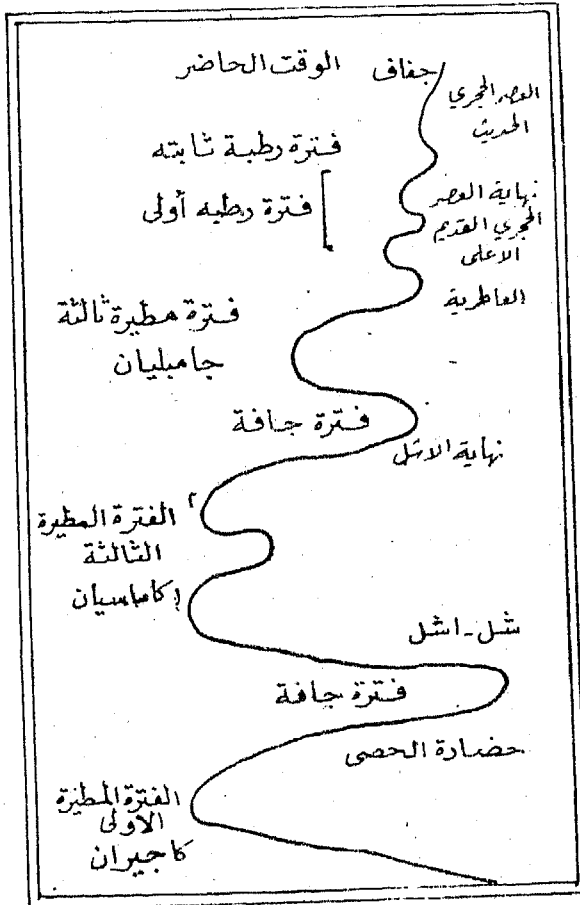 جفاف الوقت الحاضر
العصر الحجري
الحديث
فترة رطبة ثابته
نهاية العصر
الحجري القديم
الاعلى
فترة رطبه أولى
العاطرية
فترة مطيرة ثالثة
جامبليان
فترة جافة
نهاية الاشل
الفترة المطيرة
الثالثة
كاماسيان
شل - اشل
فترة جافة
حضارة الحصى
الفترة المطيرة
الاولى
كاجيران